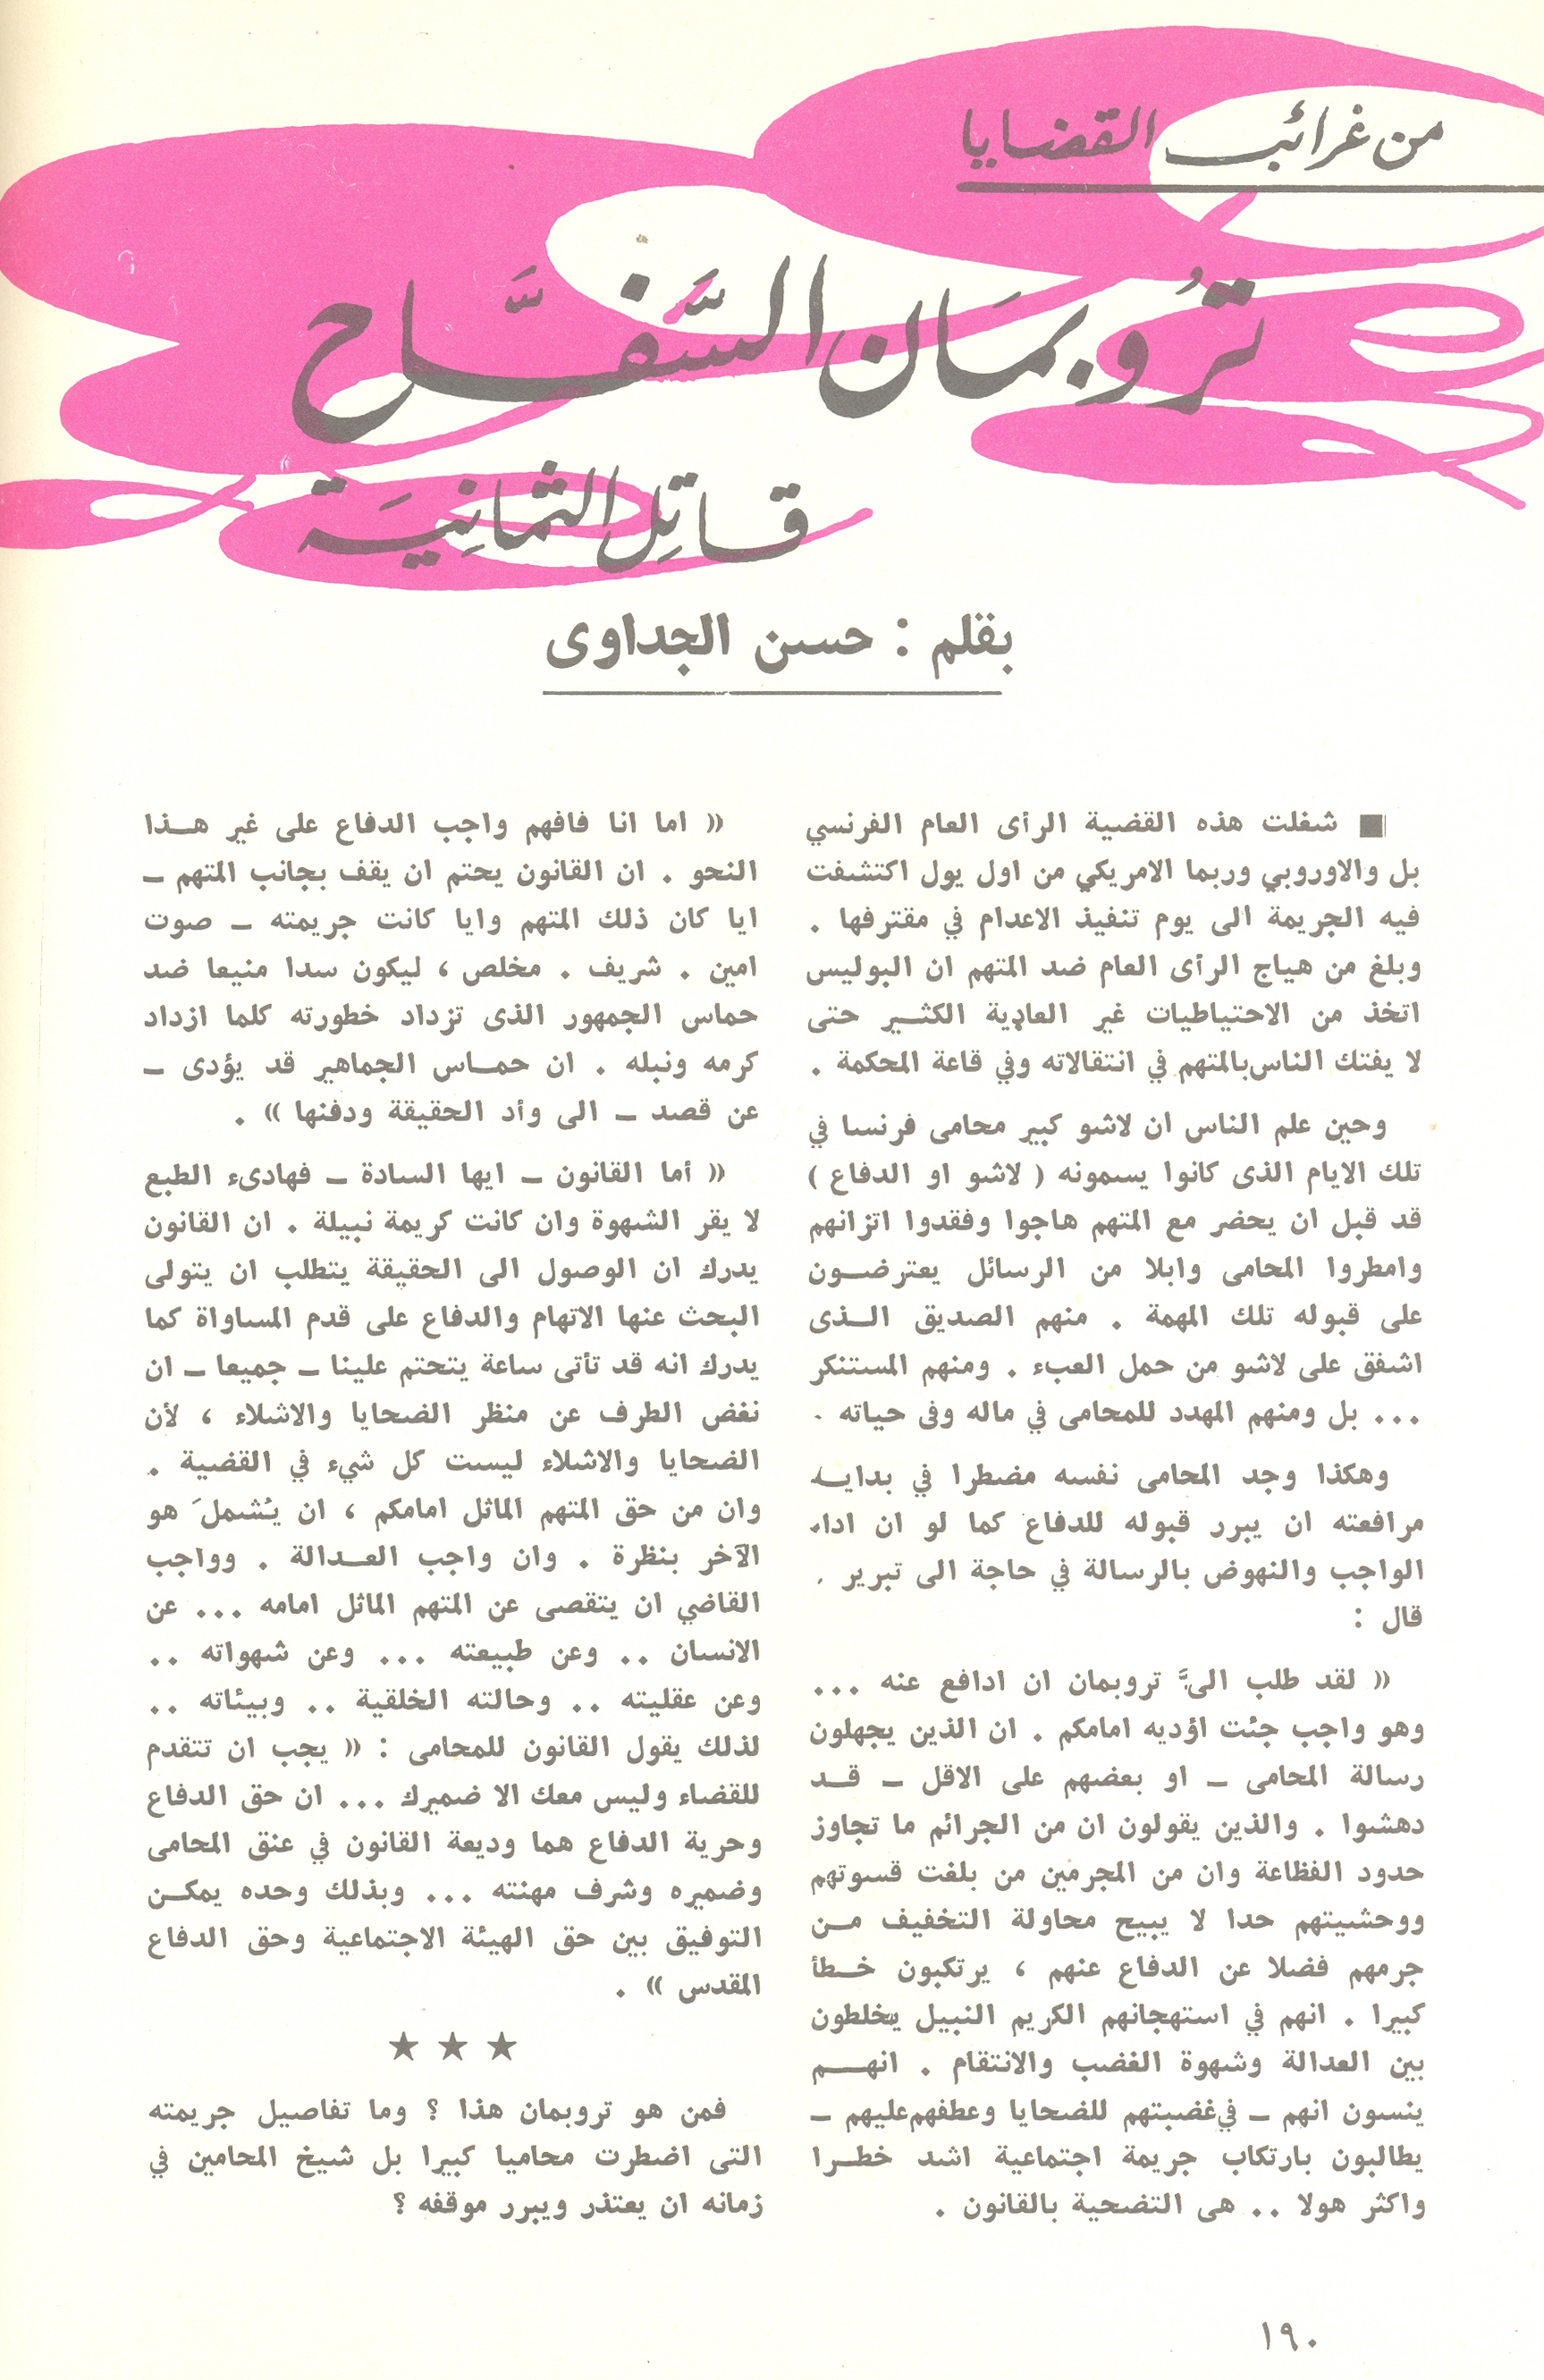 من غرائب القضايا
تُروبمَان السَّفَّاح
قاتِل الثمانِيَة
بقلم : حسن الجداوى
■ شغلت هذه القضية الرأى العام الفرنسي
بل والاوروبي وربما الامريكي من اول يول اكتشفت
فيه الجريمة الى يوم تنفيذ الاعدام في مقترفها .
وبلغ من هياج الرأى العام ضد المتهم ان البوليس
اتخذ من الاحتياطيات غير العادية الكثير حتى
لا يفتك الناس بالمتهم في انتقالاته وفي قاعة المحكمة .
وحين علم الناس ان لاشو كبير محامى فرنسا في
تلك الايام الذى كانوا يسمونه ( لاشو او الدفاع )
قد قبل ان يحضر مع المتهم هاجوا وفقدوا اتزانهم
وامطروا المحامى وابلا من الرسائل يعترضون
على قبوله تلك المهمة . منهم الصديق الذى
اشفق على لاشو من حمل العبء . ومنهم المستنكر
... بل ومنهم المهدد للمحامى في ماله وفى حياته .
وهكذا وجد المحامى نفسه مضطرا في بداية
مرافعته ان يبرر قبوله للدفاع كما لو ان اداء
الواجب والنهوض بالرسالة في حاجة الى تبرير .
قال :
« لقد طلب الىَّ تروبمان ان ادافع عنه ...
وهو واجب جئت اؤديه امامكم . ان الذين يجهلون
رسالة المحامى – او بعضهم على الاقل – قد
دهشوا . والذين يقولون ان من الجرائم ما تجاوز
حدود الفظاعة وان من المجرمين من بلغت قسوتهم
ووحشيتهم حدا لا يبيح محاولة التخفيف من
جرمهم فضلا عن الدفاع عنهم ، يرتكبون خطأ
كبيرا . انهم في استهجانهم الكريم النبيل يخلطون
بين العدالة وشهوة الغضب والانتقام . انهم
ينسون انهم – في غضبتهم للضحايا وعطفهم عليهم –
يطالبون بارتكاب جريمة اجتماعية اشد خطرا
واكثر هولا .. هى التضحية بالقانون .
« اما انا فافهم واجب الدفاع على غير هذا
النحو . ان القانون يحتم ان يقف بجانب المتهم –
ايا كان ذلك المتهم وايا كانت جريمته – صوت
امين . شريف . مخلص ، ليكون سدا منيعا ضد
حماس الجمهور الذى تزداد خطورته كلما ازداد
كرمه ونبله . ان حماس الجماهير قد يؤدى –
عن قصد – الى وأد الحقيقة ودفنها » .
« أما القانون – ايها السادة – فهادىء الطبع
لا يقر الشهوة وان كانت كريمة نبيلة . ان القانون
يدرك ان الوصول الى الحقيقة يتطلب ان يتولى
البحث عنها الاتهام والدفاع على قدم المساواة كما
يدرك انه قد تأتى ساعة يتحتم علينا – جميعا – ان
نغض الطرف عن منظر الضحايا والاشلاء ، لأن
الضحايا والاشلاء ليست كل شيء في القضية .
وان من حق المتهم الماثل امامكم ، ان يُشملَ هو
الآخر بنظرة . وان واجب العدالة . وواجب
القاضي ان يتقصى عن المتهم الماثل امامه ... عن
الانسان .. وعن طبيعته ... وعن شهواته ..
وعن عقليته .. وحالته الخلقية .. وبيئاته ..
لذلك يقول القانون للمحامى : « يجب ان تتقدم
للقضاء وليس معك الا ضميرك ... ان حق الدفاع
وحرية الدفاع هما وديعة القانون في عنق المحامى
وضميره وشرف مهنته ... وبذلك وحده يمكن
التوفيق بين حق الهيئة الاجتماعية وحق الدفاع
المقدس » .
★ ★ ★
فمن هو تروبمان هذا ؟ وما تفاصيل جريمته
التى اضطرت محاميا كبيرا بل شيخ المحامين في
زمانه ان يعتذر ويبرر موقفه ؟
١٩٠